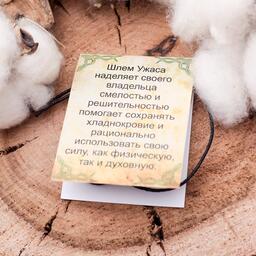 Шлем Ужаса
наделяет своего
владельца
смелостью и
решительностью
помогает сохранять
хладнокровие и
рационально
использовать свою
силу, как физическую,
так и духовную.